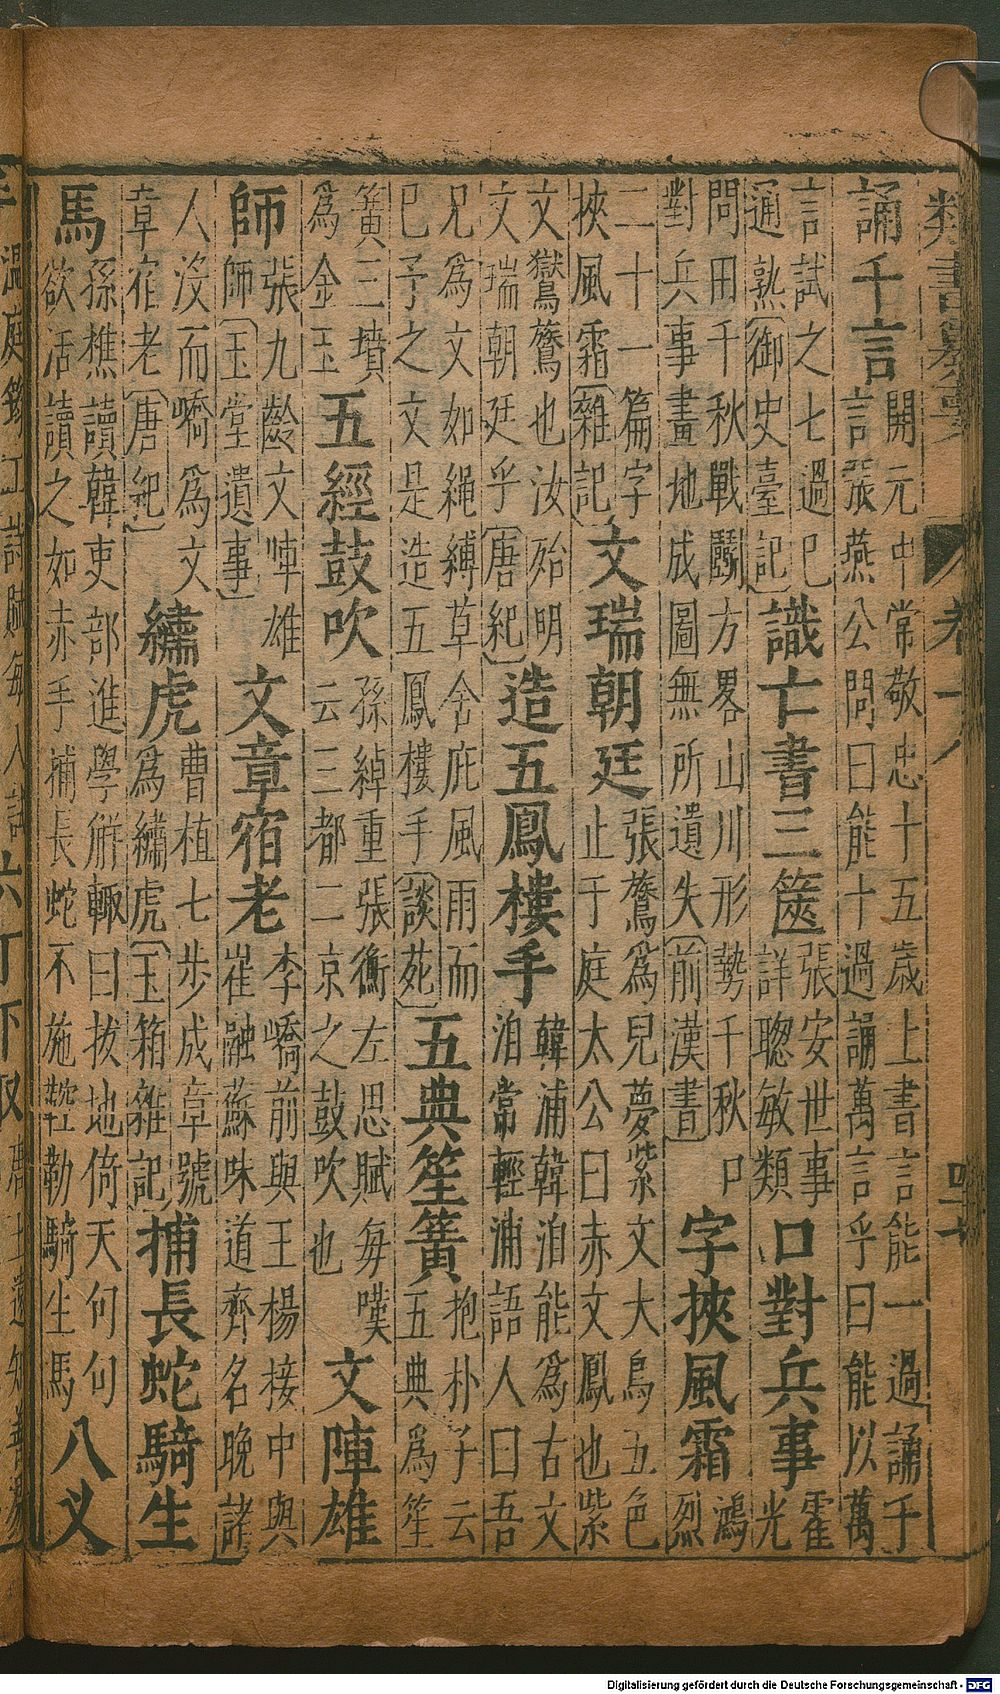 類書纂要
卷十八
誦千言
開元中常敬忠十五歲上書言能一過誦千
言張燕公問曰能十過誦萬言乎曰能以萬
言試之七過已
通熟〔御史臺記〕
識亡書三篋
張安世事
詳聰敏類
口對兵事
霍
光
問田千秋戰鬬方畧山川形勢千秋口
對兵事畫地成圖無所遺失〔前漢書〕
字挾風霜
鴻
烈
二十一篇字
挾風霜〔雜記〕
文瑞朝廷
張鷟為兒夢紫文大鳥五色
止于庭太公曰赤文鳳也紫
文鸑鷟也汝殆明
文瑞朝廷乎〔唐紀〕
造五鳳樓手
韓浦韓洎能為古文
洎常輕浦語人曰吾
兄為文如繩縛草舍庇風雨而
已予之文是造五鳳樓手〔談苑〕
五典笙簧
抱朴子云
五典為笙
簧三墳
為金玉
五經鼓吹
孫綽重張衡左思賦每嘆
云三都二京之鼓吹也
文陣雄
師
張九齡文陣雄
師〔玉堂遺事〕
文章宿老
李嶠前與王楊接中與
崔融蘇味道齊名晚諸
人沒而嶠為文
章宿老〔唐紀〕
繡虎
曹植七步成章號
為繡虎〔玉箱雜記〕
捕長蛇騎生
馬
孫樵讀韓吏部進學解輒曰拔地倚天句句
欲活讀之如赤手捕長蛇不施鞚勒騎生馬
八叉
Digitalisierung gefördert durch die Deutsche Forschungsgemeinschaft - DFG